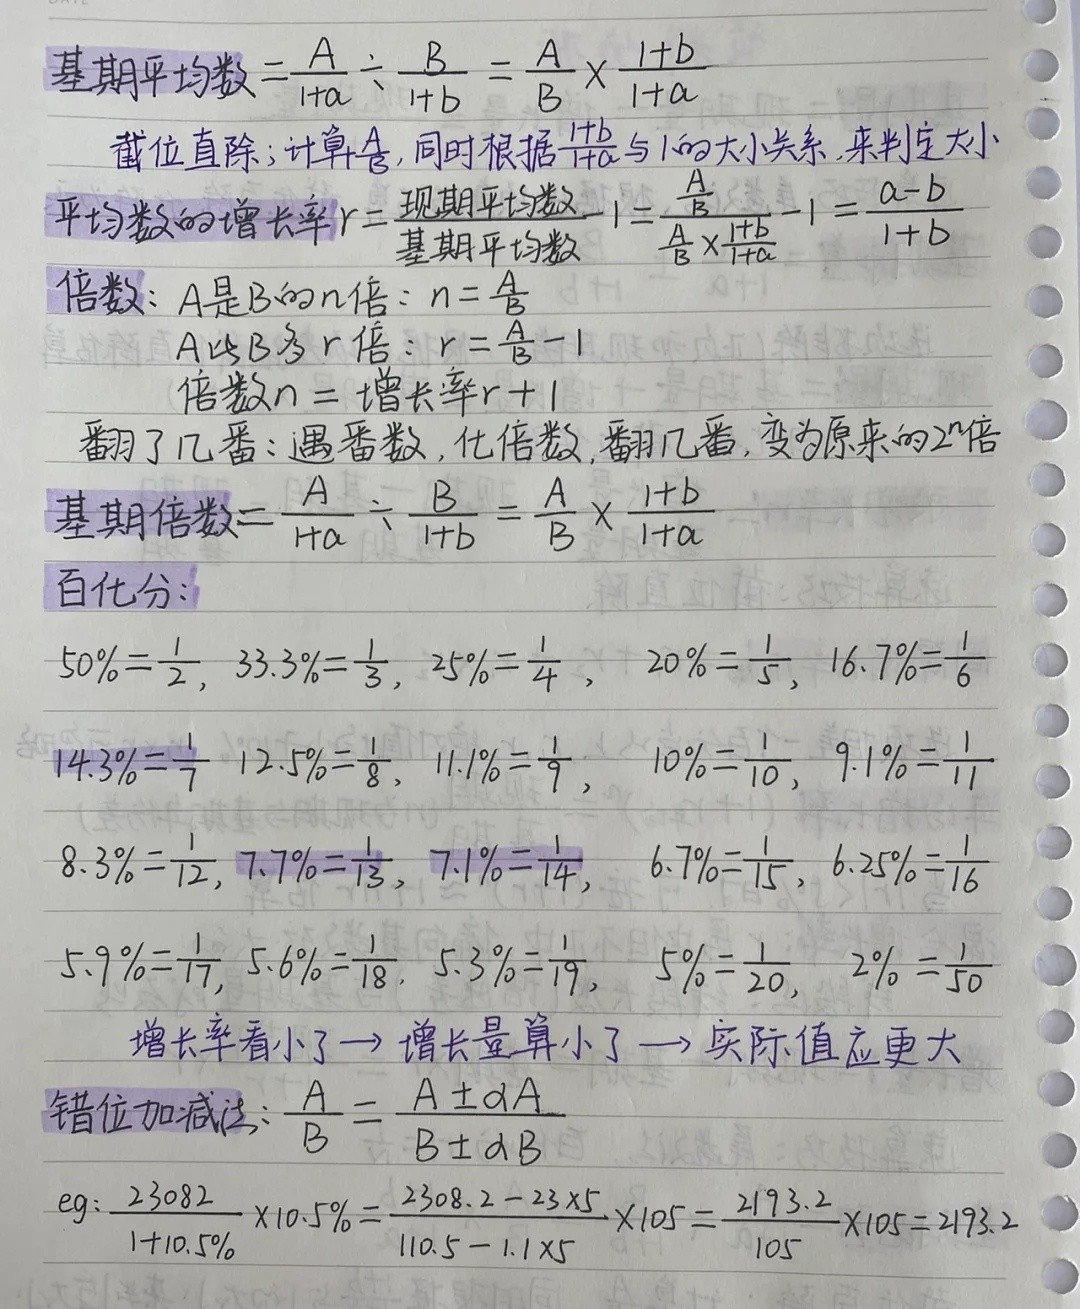 基期平均数 = A/(1+a) ÷ B/(1+b) = A/B × (1+b)/(1+a)
截位直除；计算A/B，同时根据(1+b)/(1+a)与1的大小关系，来判定大小
平均数的增长率r = 现期平均数/基期平均数 - 1 = (A/B)/(A/B × (1+b)/(1+a)) - 1 = (a-b)/(1+b)
倍数：A是B的n倍：n = A/B
A比B多r倍：r = A/B - 1
倍数n = 增长率r + 1
翻了几番：遇番数，化倍数，翻几番，变为原来的2ⁿ倍
基期倍数 = A/(1+a) ÷ B/(1+b) = A/B × (1+b)/(1+a)
百化分：
50% = 1/2, 33.3% = 1/3, 25% = 1/4, 20% = 1/5, 16.7% = 1/6
14.3% = 1/7 12.5% = 1/8, 11.1% = 1/9, 10% = 1/10, 9.1% = 1/11
8.3% = 1/12, 7.7% = 1/13, 7.1% = 1/14, 6.7% = 1/15, 6.25% = 1/16
5.9% = 1/17, 5.6% = 1/18, 5.3% = 1/19, 5% = 1/20, 2% = 1/50
增长率看小了 → 增长量算小了 → 实际值应更大
错位加减法：A/B = (A±αA)/(B±αB)
eg: 23082/(1+10.5%) × 10.5% = (2308.2-23×5)/(110.5-1.1×5) × 105 = 2193.2/105 × 105 = 2193.2